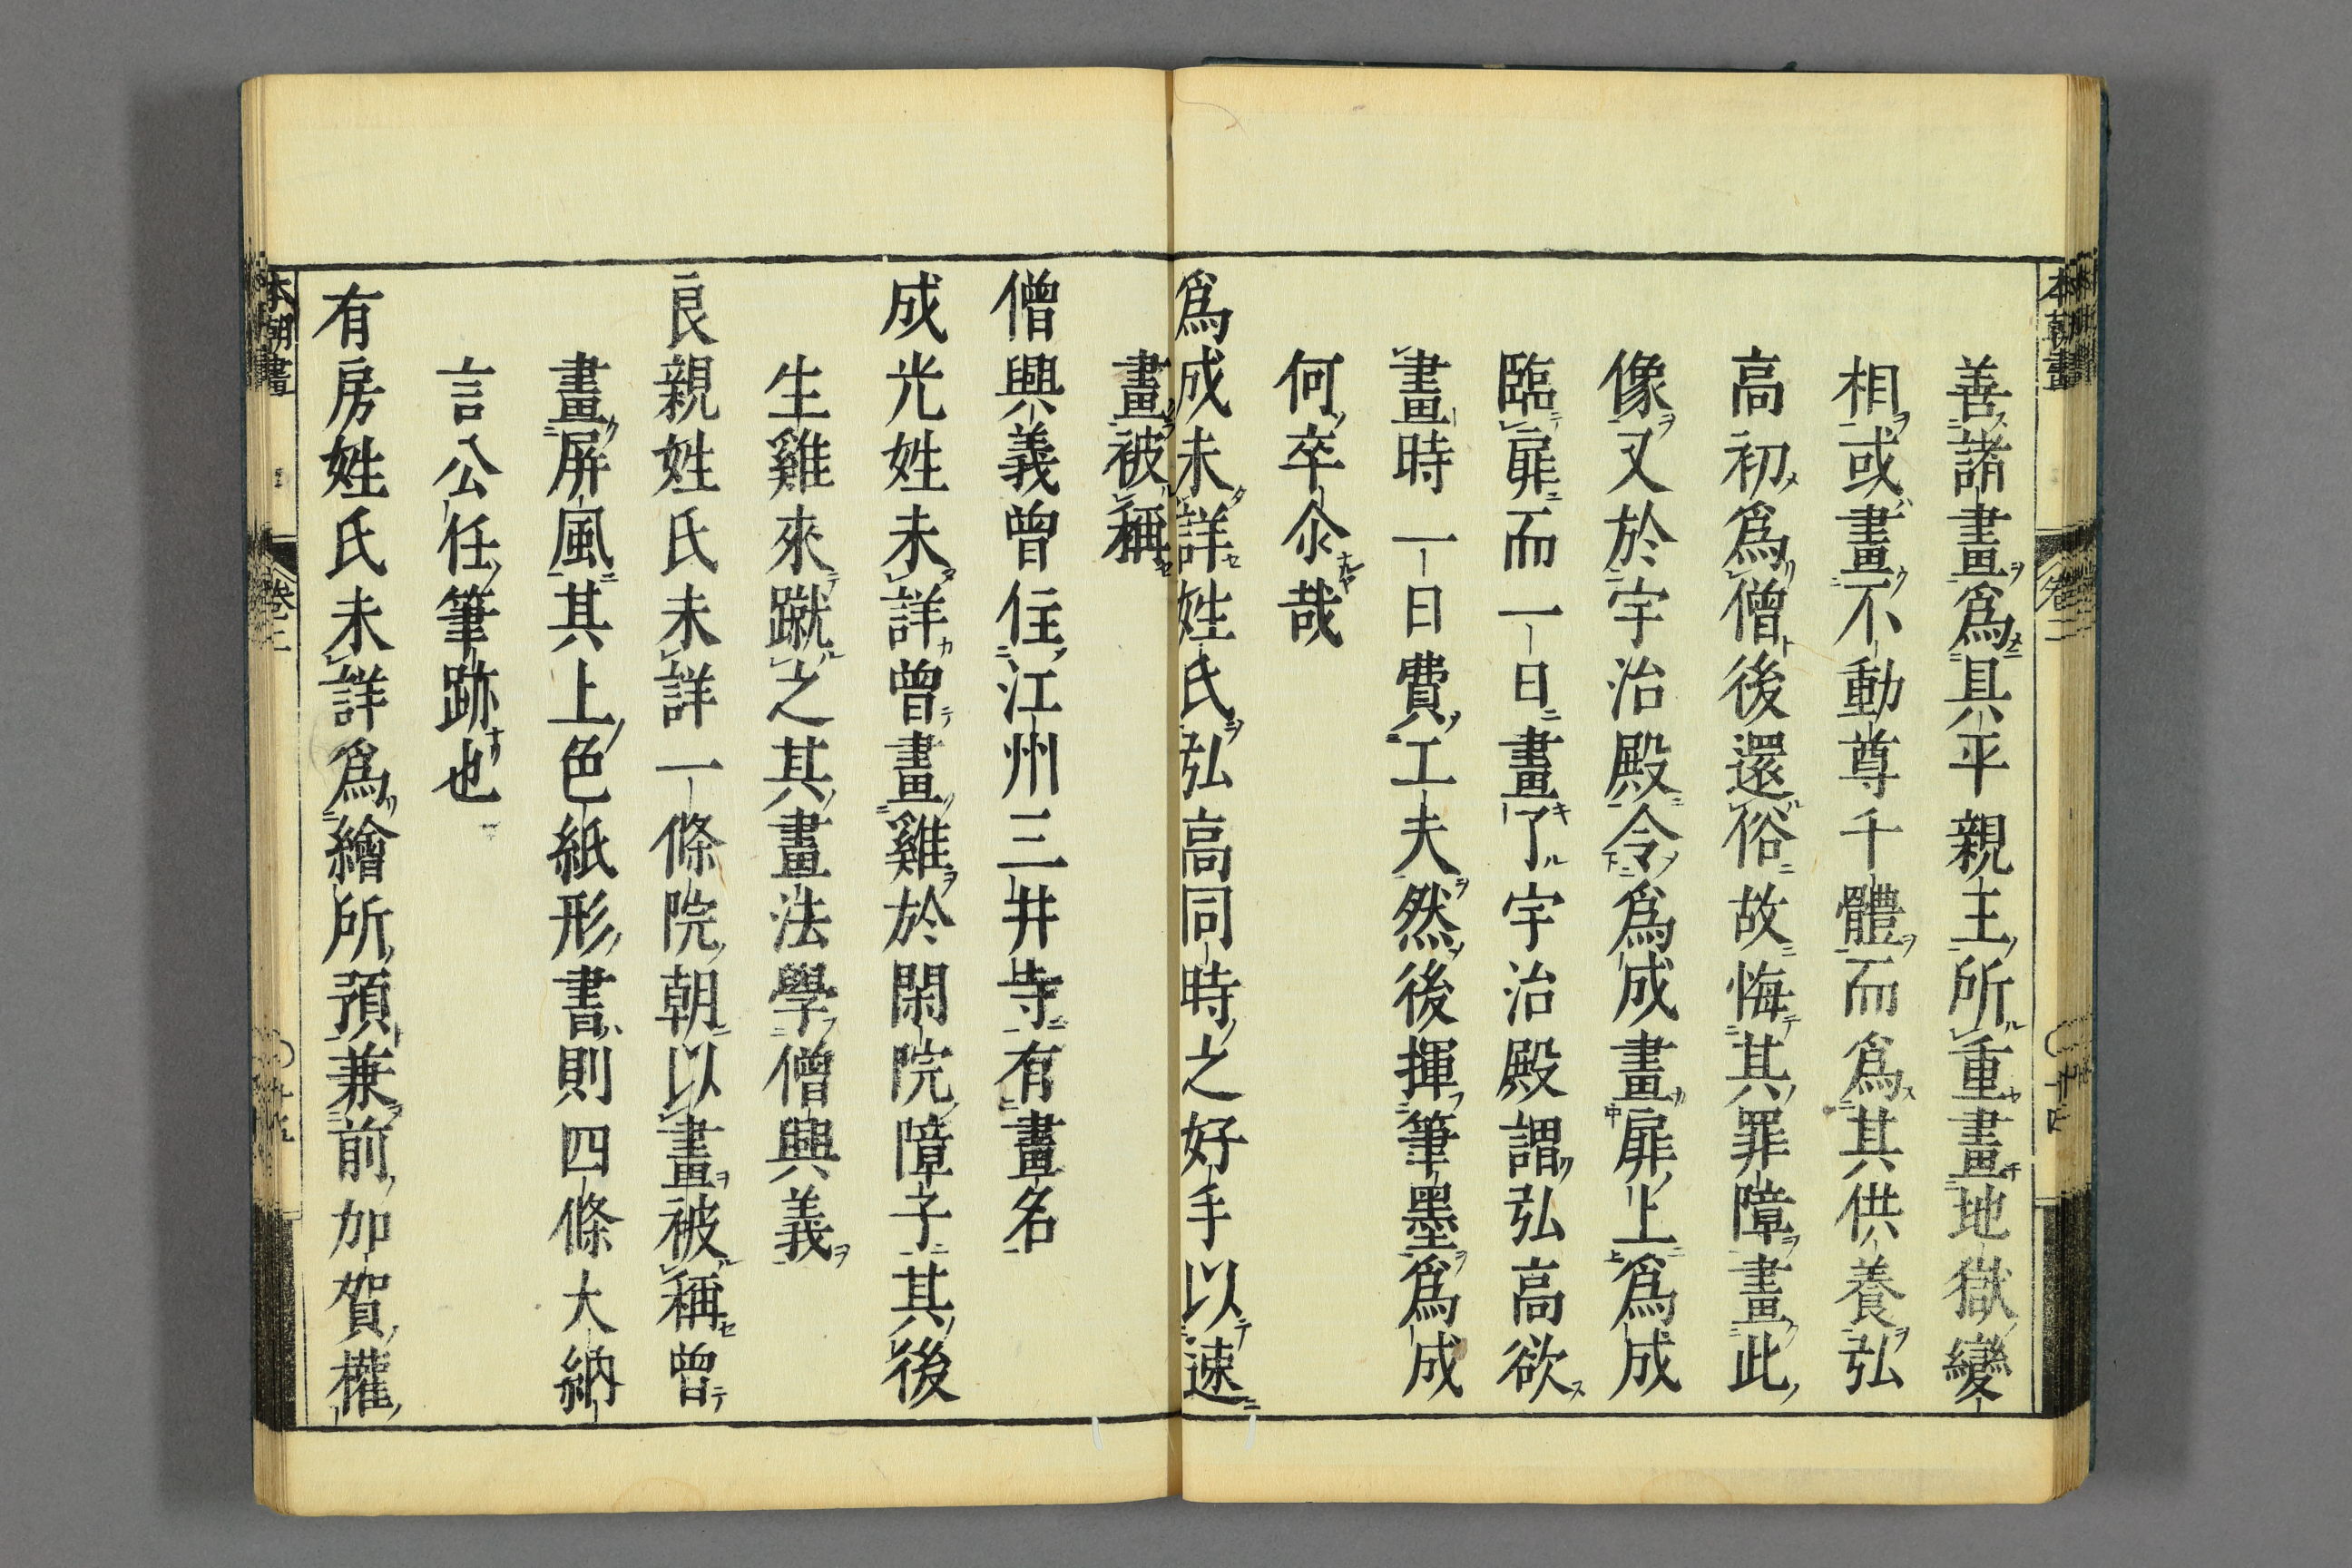 善諸畫爲具平親王所重畫地獄變
相或畫不動尊千體而爲其供養弘
高初爲僧後還俗故悔其罪障畫此
像又於宇治殿令爲成畫扉上爲成
臨扉而一日畫了宇治殿謂弘高欲
畫時一日費工夫然後揮筆墨爲成
何卒尒哉
爲成未詳姓氏弘高同時之好手以速
畫被稱
僧興義曾住江州三井寺有畫名
成光姓未詳曾畫雞於閑院障子其後
生雞來蹴之其畫法學僧興義
良親姓氏未詳一條院朝以畫被稱曾
畫屏風其上色紙形書則四條大納
言公任筆跡也
有房姓氏未詳爲繪所預兼前加賀權
本朝畫
卷二